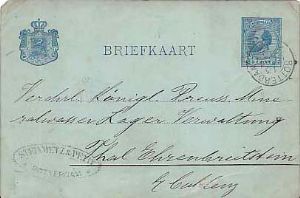 BRIEFKAART
ROTTERDAM
Verehrl. Königl. Preuss. Mine
ralwasser Lager Verwaltung
Thal Ehrenbreitstein
b/ Coblenz
ROTTERDAM